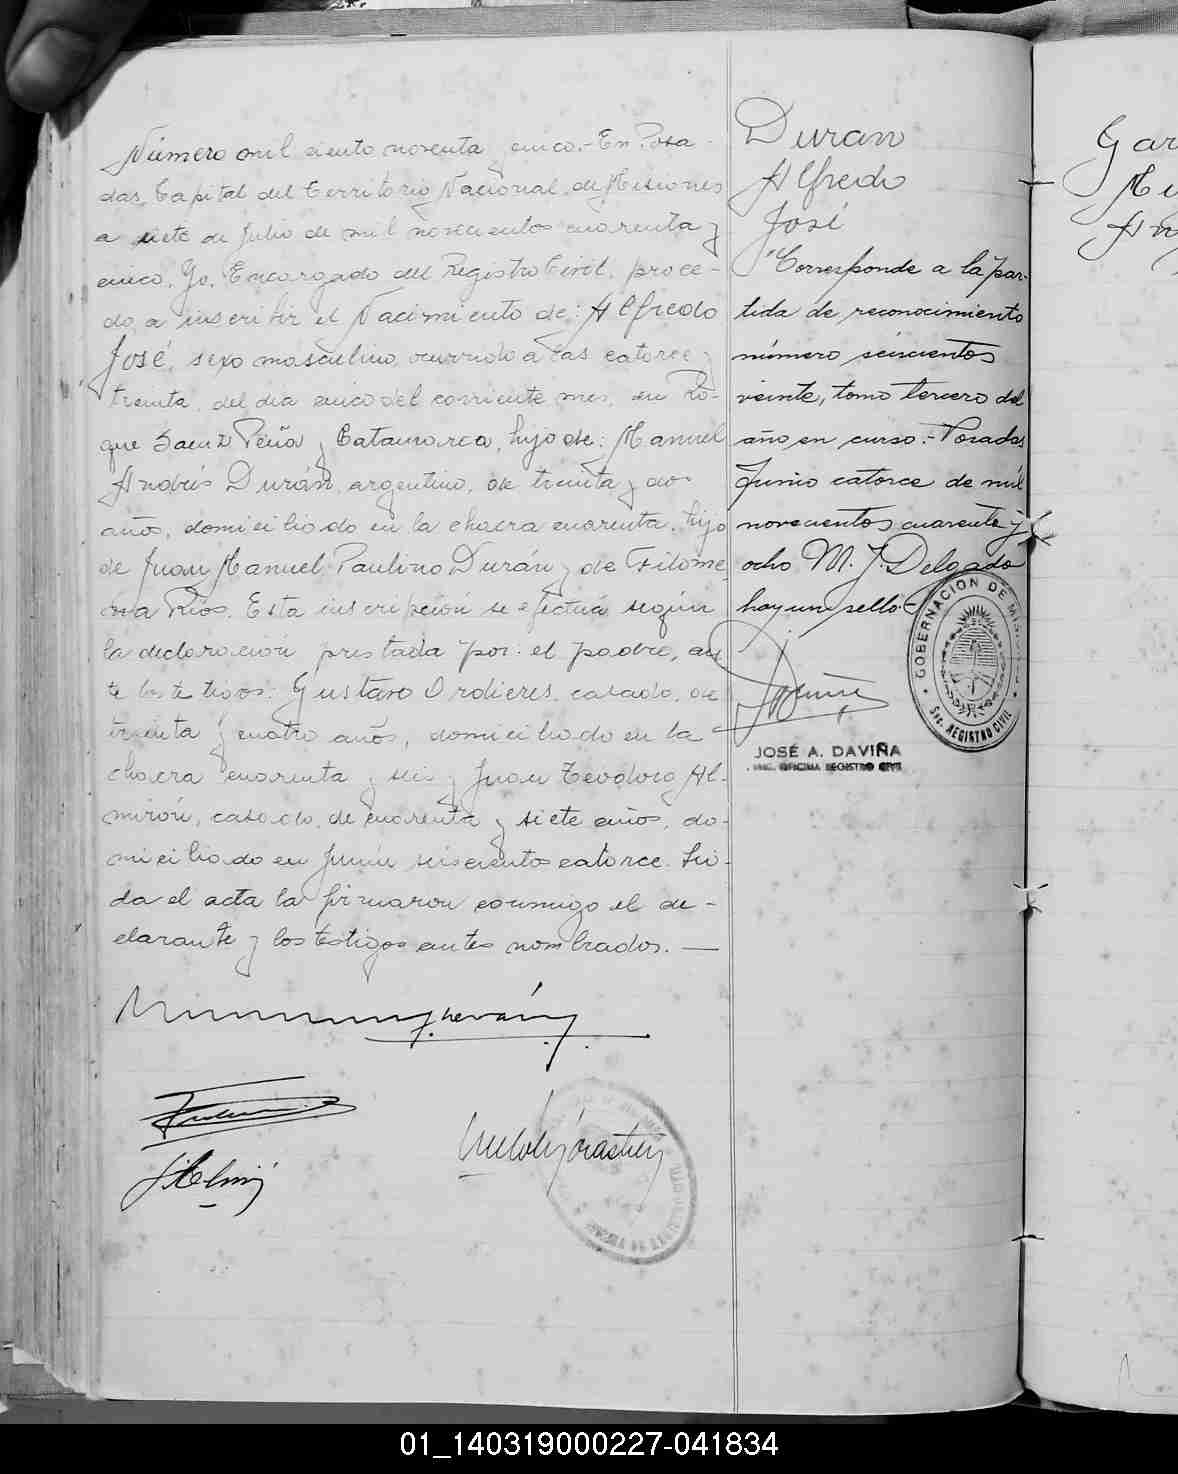 Número mil ciento noventa y cinco.- En Posa-
das, Capital del Territorio Nacional de Misiones
a siete de Julio de mil novecientos cuarenta y
cinco. Yo, Encargado del Registro Civil, proce-
do a inscribir el Nacimiento de: Alfredo
José, sexo masculino, ocurrido a las catorce y
treinta, del dia cinco del corriente mes, en Ro-
que Saenz Peña y Catamarca, hijo de: Manuel
Andrés Durán, argentino, de treinta y dos
años, domiciliado en la chacra cuarenta, hijo
de Juan Manuel Paulino Durán y de Filome
na Ríos. Esta inscripción se efectúa según
la declaración prestada por: el padre, an
te los testigos: Gustavo Ordieres, casado, de
treinta y cuatro años, domiciliado en la
chacra cuarenta y seis y Juan Teodoro Al-
mirón, casado, de cuarenta y siete años, do-
miciliado en Junín seiscientos catorce. Leí-
da el acta la firmaron conmigo el de-
clarante y los testigos antes nombrados. —
Duran
Alfredo
José
"Corresponde a la par-
tida de reconocimiento
número seiscientos
veinte, tomo tercero del
año en curso.- Posadas
Junio catorce de mil
novecientos cuarenta y
ocho M. J. Delgado
hay un sello-
GOBERNACIÓN DE
Sec. REGISTRO CIVIL
JOSÉ A. DAVIÑA
ENC. OFICINA REGISTRO CIVIL
Gar
Mi
An
01_140319000227-041834